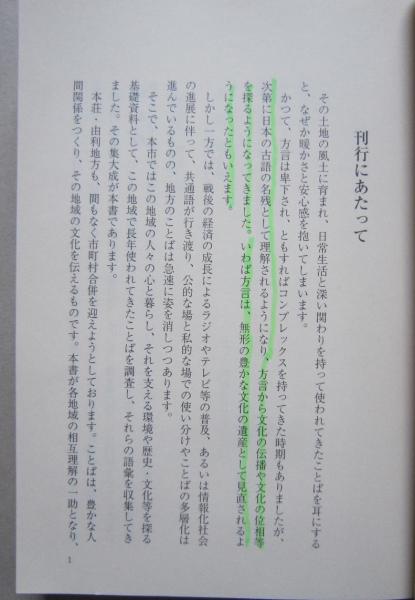 刊行にあたって
その土地の風土に育まれ、日常生活と深い関わりを持って使われてきたことばを耳にする
と、なぜか暖かさと安心感を抱いてしまいます。
かつて、方言は卑下され、ともすればコンプレックスを持ってきた時期もありましたが、
次第に日本の古語の名残として理解されるようになり、方言から文化の伝播や文化の位相等
を探るようになってきました。いわば方言は、無形の豊かな文化の遺産として見直されるよ
うになったともいえます。
しかし一方では、戦後の経済の成長によるラジオやテレビ等の普及、あるいは情報化社会
の進展に伴って、共通語が行き渡り、公的な場と私的な場での使い分けやことばの多層化は
進んでいるものの、地方のことばは急速に姿を消しつつあります。
そこで、本市ではこの地域の人々の心と暮らし、それを支える環境や歴史・文化等を探る
基礎資料として、この地域で長年使われてきたことばを調査し、それらの語彙を収集してき
ました。その集大成が本書であります。
本荘・由利地方も、間もなく市町村合併を迎えようとしております。ことばは、豊かな人
間関係をつくり、その地域の文化を伝えるものです。本書が各地域の相互理解の一助となり、
1